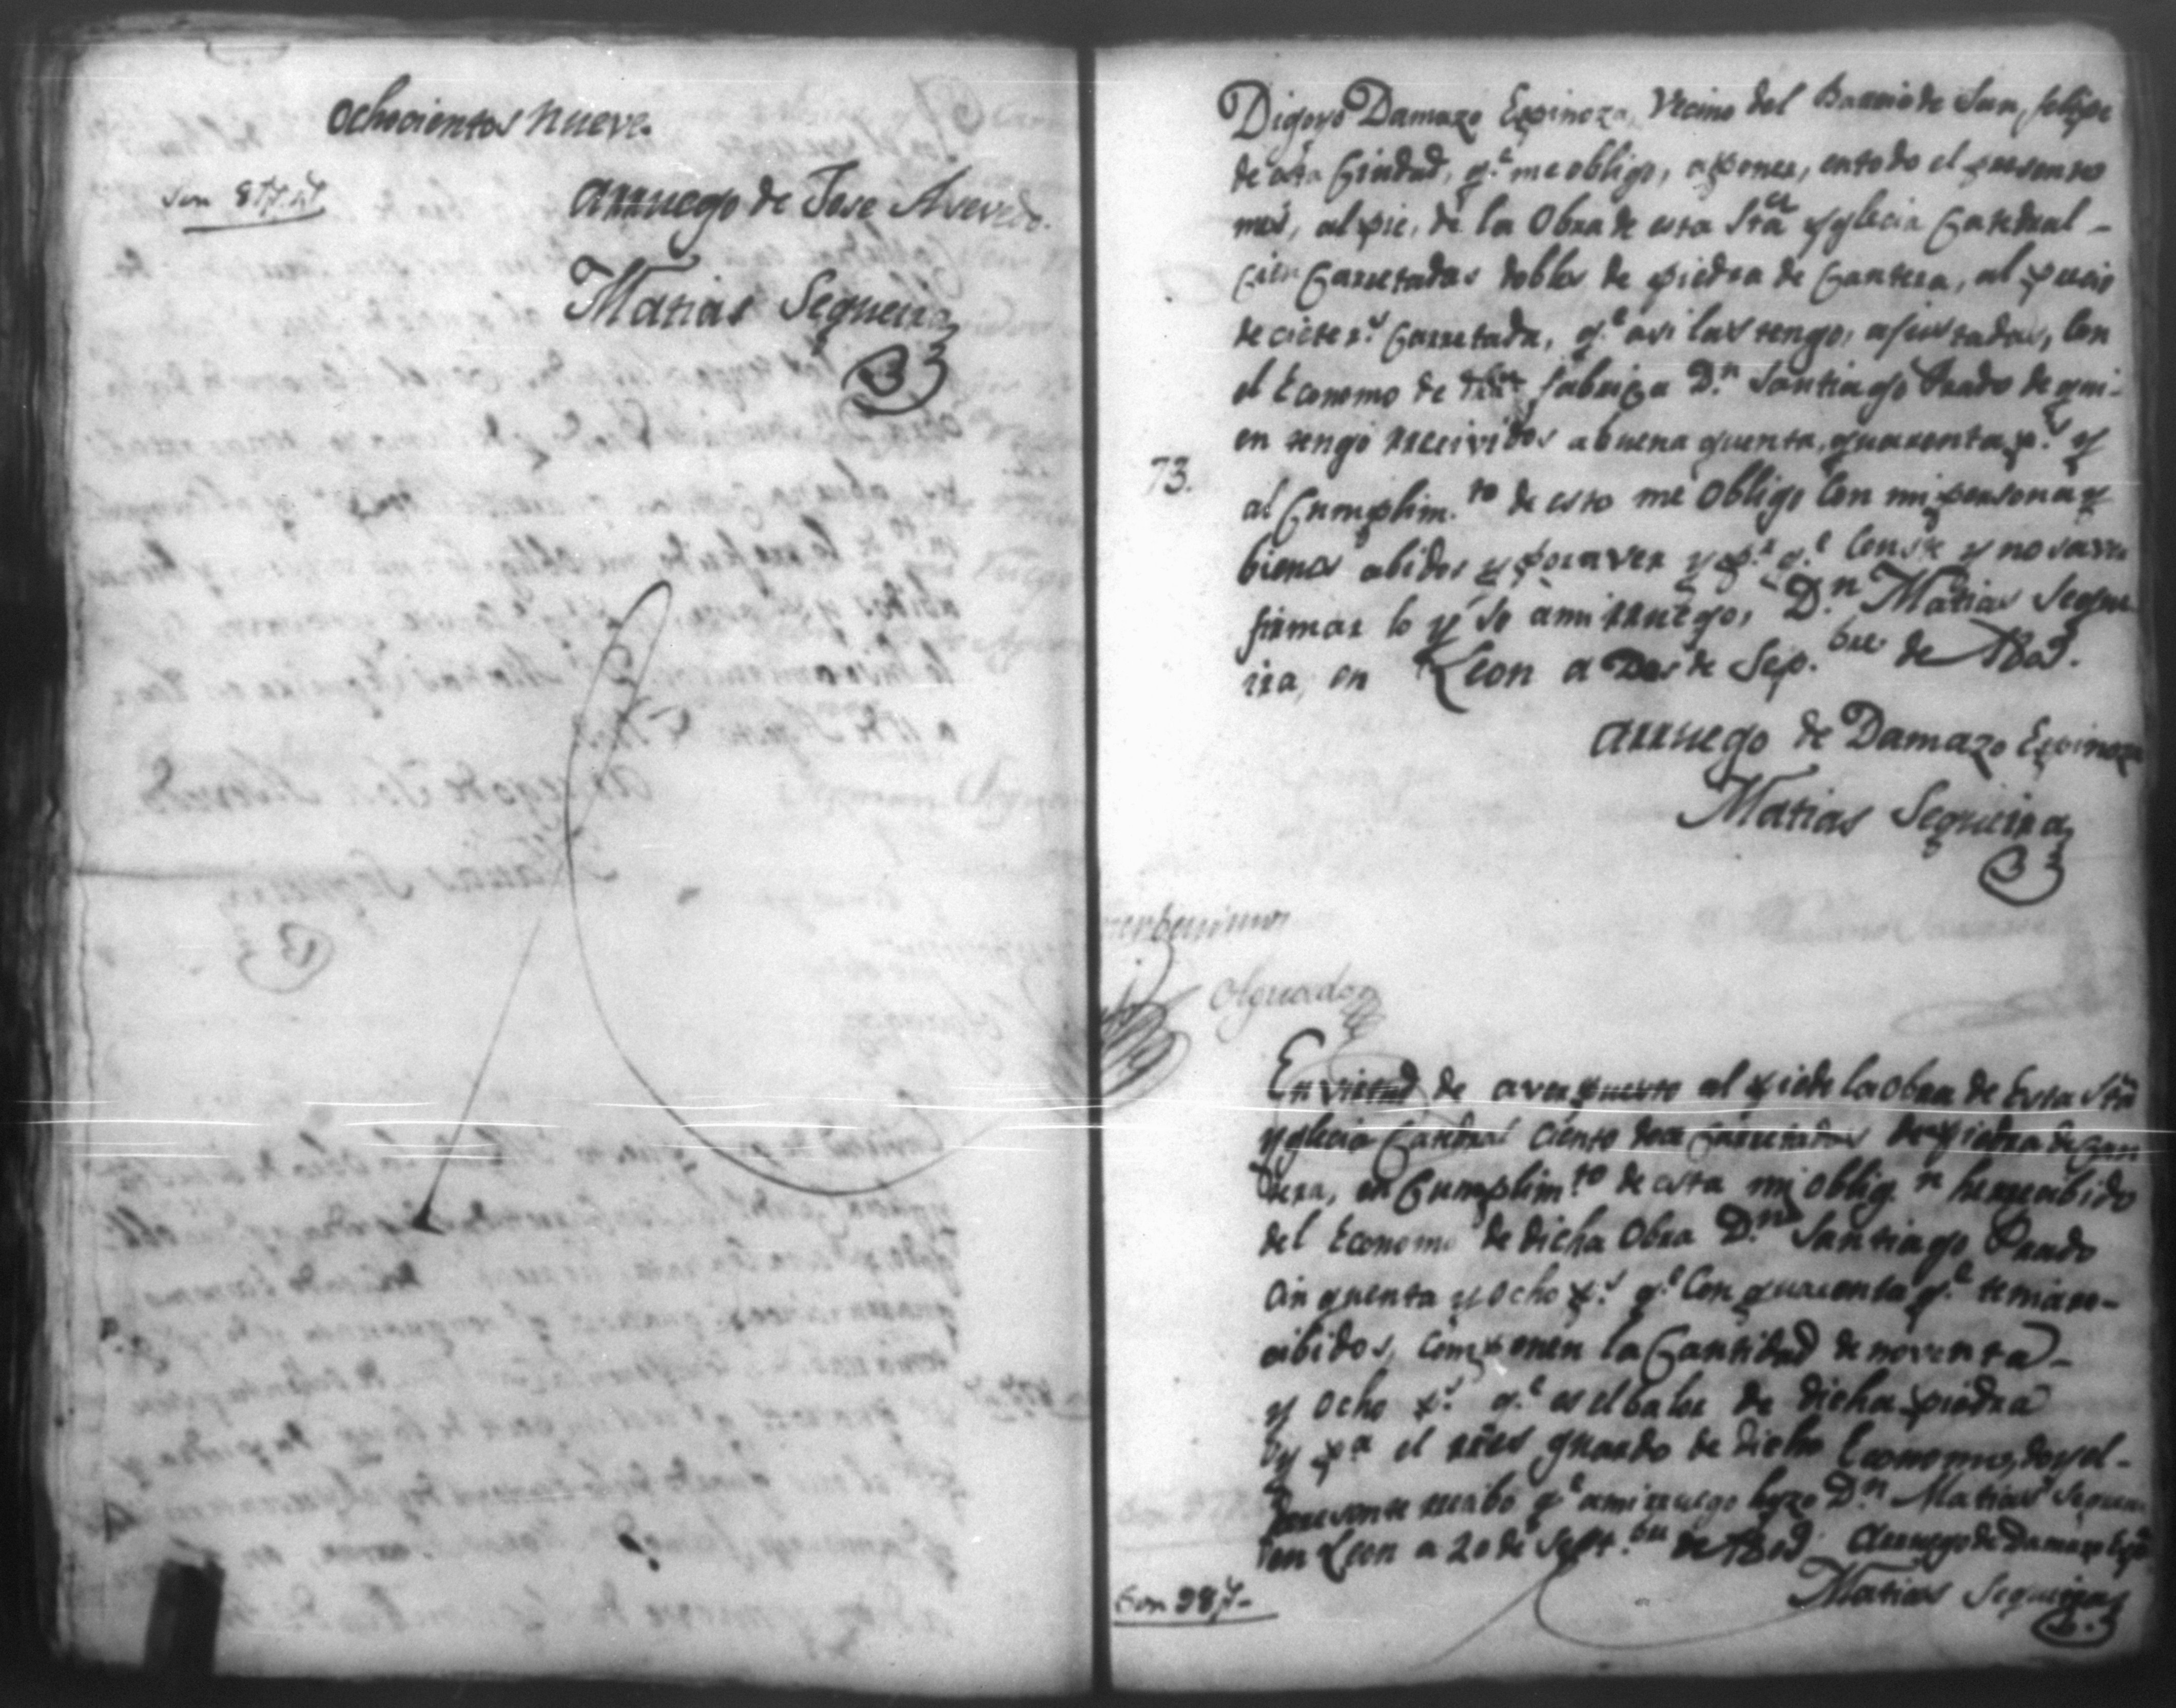 ochocientos nueve.
Son
arruego de Jose Asevedo.
Matias Sequeira
Digo yo Damazo Espinoza, Vecino del Barrio de San Felipe
de esta Ciudad, q.e me obligo, a poner, en todo el presente
mes, al pie, de la Obra de esta Sta Yglecia Catedral -
cien Carretadas dobles de piedra de Cantera, al precio
de ciete r.s Carretada, q.e asi las tengo, ajustadas, con
el Economo de fabrica D.n Santiago Prado de qui-
en tengo rrecividos a buena quenta, quarenta p.s y
73.
al Cumplim.to de esto me obligo con mi persona y
bienes abidos y por aver y p.a q.e conste y no saver
firmar lo yso a mi rruego, D.n Matias Seque
ira, en Leon a Dos de Sep.bre de 1809.
arruego de Damazo Espinoza
Matias Sequeira
En virtud de aver puesto al pie de la obra de Esta Sta
Yglecia Catedral ciento doce Carretadas de piedra de Can
tera, en Cumplim.to de esta mi oblig.n he rrecibido
del Economo de dicha Obra D.n Santiago Prado
cinquenta y ocho p.s q.e con quarenta q.e tenia re-
cibidos, componen la Cantidad de noventa -
y ocho p.s q.e es el balor de dicha piedra
y p.a el rres guardo de dicho Economo, doy el -
presente recibo q.e a mi rruego hyzo D.n Matias Sequeira
en Leon a 20 de Sept.bre de 1809. Arruego de Damazo Espa
Son 98p.-
Matias Sequeira